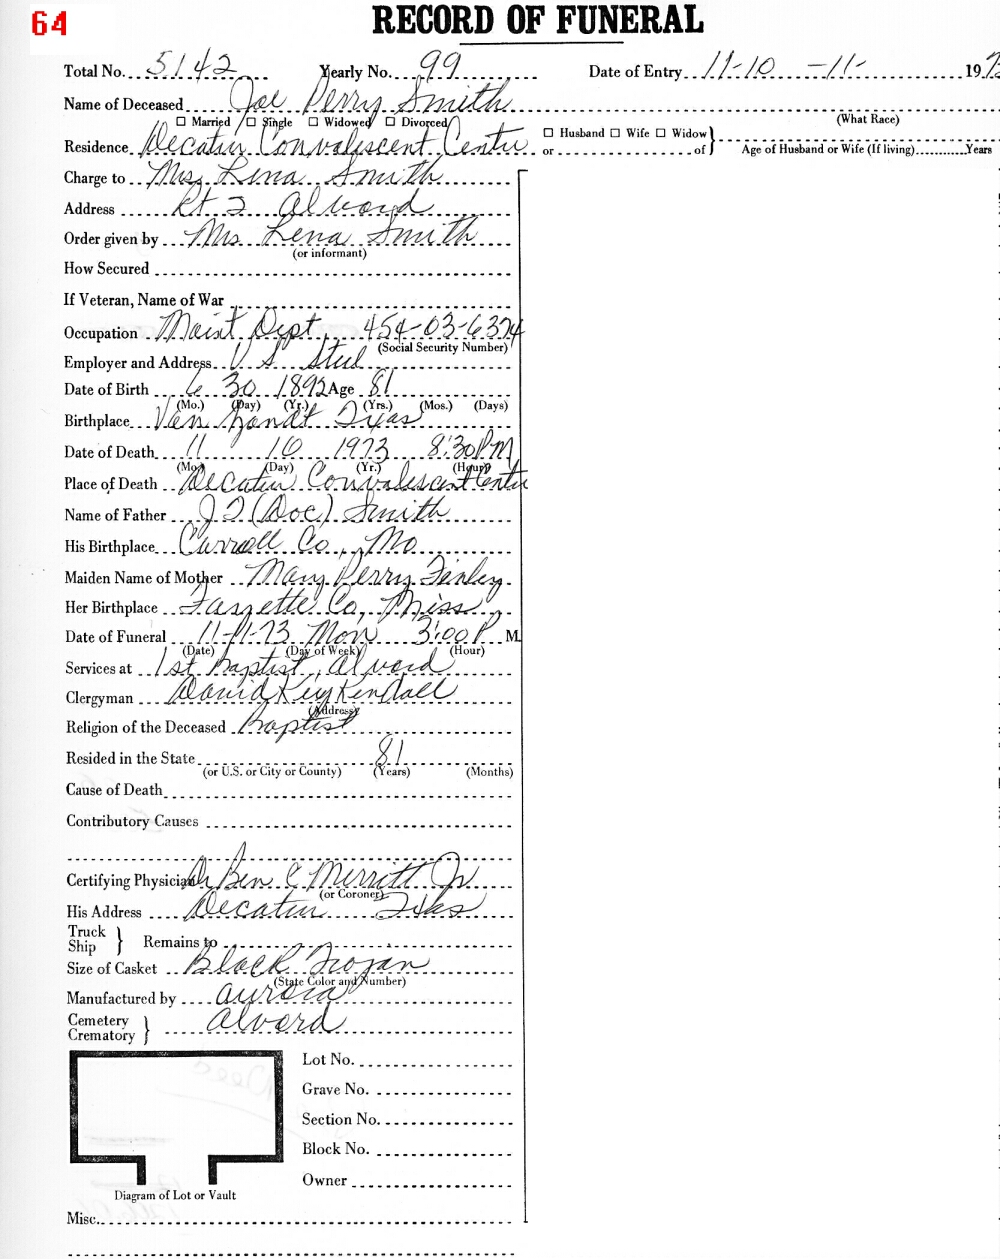 64
RECORD OF FUNERAL
Total No. 5142 Yearly No. 99 Date of Entry 11-10 -11- 197
Name of Deceased Joe Perry Smith
☐ Married ☐ Single ☐ Widowed ☐ Divorced (What Race)
Residence Decatur Convalescent Center or of } ☐ Husband ☐ Wife ☐ Widow Age of Husband or Wife (If living) Years
Charge to Mrs, Lena Smith
Address Rt 2 Alvord
Order given by Mrs Lena Smith
(or informant)
How Secured
If Veteran, Name of War
Occupation Maint Dept 454-03-6374
(Social Security Number)
Employer and Address U S Steel
Date of Birth 6 30 1892 Age 81
(Mo.) (Day) (Yr.) (Yrs.) (Mos.) (Days)
Birthplace Van Zandt Texas
Date of Death 11 10 1973 8:30 PM
(Mo.) (Day) (Yr.) (Hour)
Place of Death Decatur Convalescent Center
Name of Father J T (Doc) Smith
His Birthplace Carroll Co., Mo
Maiden Name of Mother Mary Perry Finley
Her Birthplace Co, Miss
Date of Funeral 11-11-73 Mon 3:00 P M.
(Date) (Day of Week) (Hour)
Services at 1st Baptist, Alvord
Clergyman David KuyKendall
(Address)
Religion of the Deceased Baptist
Resided in the State 81
(or U.S. or City or County) (Years) (Months)
Cause of Death
Contributory Causes
Certifying Physician Dr Ben C Merritt Jr
(or Coroner)
His Address Decatur Texas
Truck
Ship } Remains to
Size of Casket Black Trojan
(State Color and Number)
Manufactured by Aurora
Cemetery
Crematory } Alvord
Lot No.
Grave No.
Section No.
Block No.
Owner
Diagram of Lot or Vault
Misc.